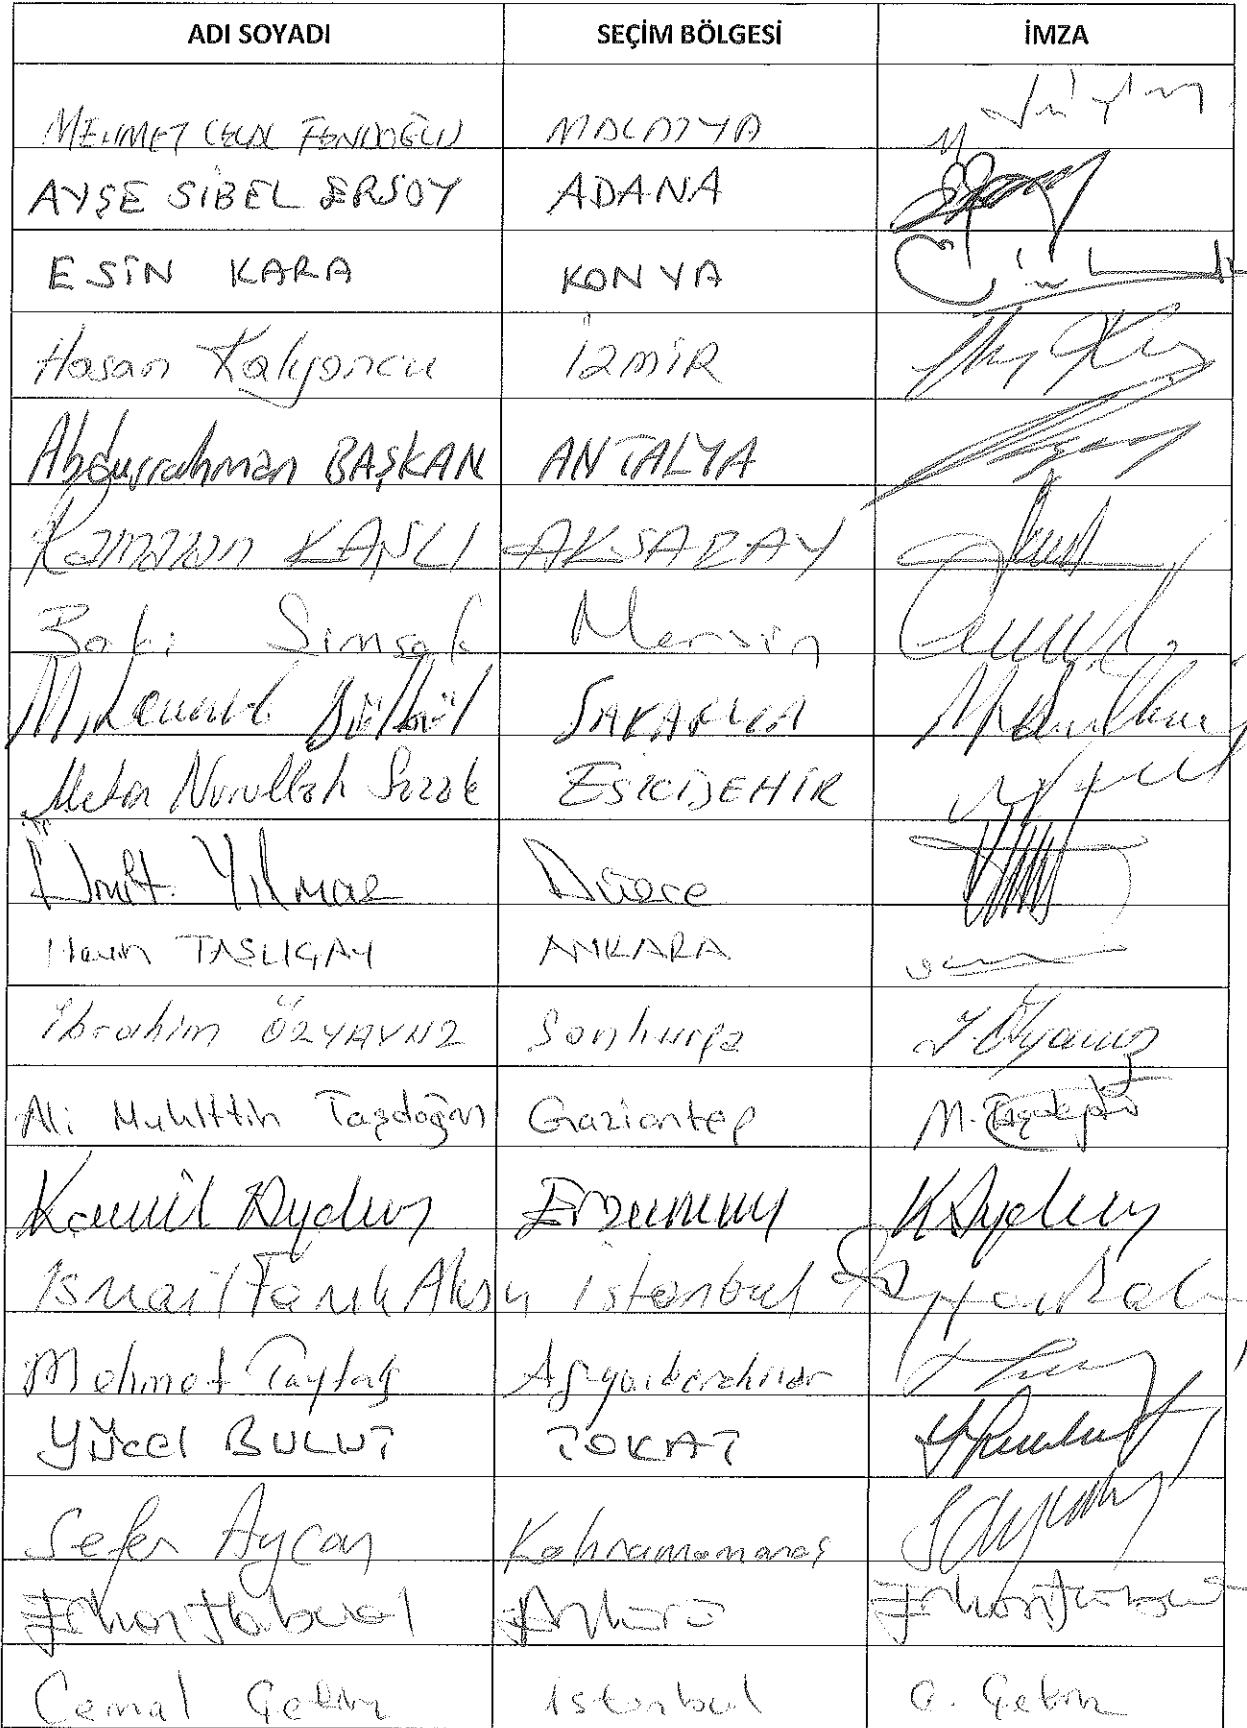 ADI SOYADI SEÇİM BÖLGESİ İMZA
MEHMET CELAL FENDOĞLU MALATYA
AYŞE SİBEL ERSOY ADANA
ESİN KARA KONYA
Hasan Kalyoncu İZMİR
Abdurrahman BAŞKAN ANTALYA
Ramazan KAŞLI AKSARAY
Baki Şimşek Mersin
M. Levent Bülbül SAKARYA
Metin Nurullah Sazak ESKİŞEHİR
Ümit Yılmaz Düzce
TAŞLIÇAY ANKARA
İbrahim ÖZYAVUZ Şanlıurfa İ. Özyavuz
Ali Muhittin Taşdoğan Gaziantep M. Taşdoğan
Kamil Aydın Erzurum K Aydın
İsmail Faruk Aksu İstanbul
Mehmet Taytak Afyonkarahisar
Yücel BULUT TOKAT
Sefer Aycan Kahramanmaraş
Erkan Haberal Ankara
Cemal Çetin İstanbul C. Çetin